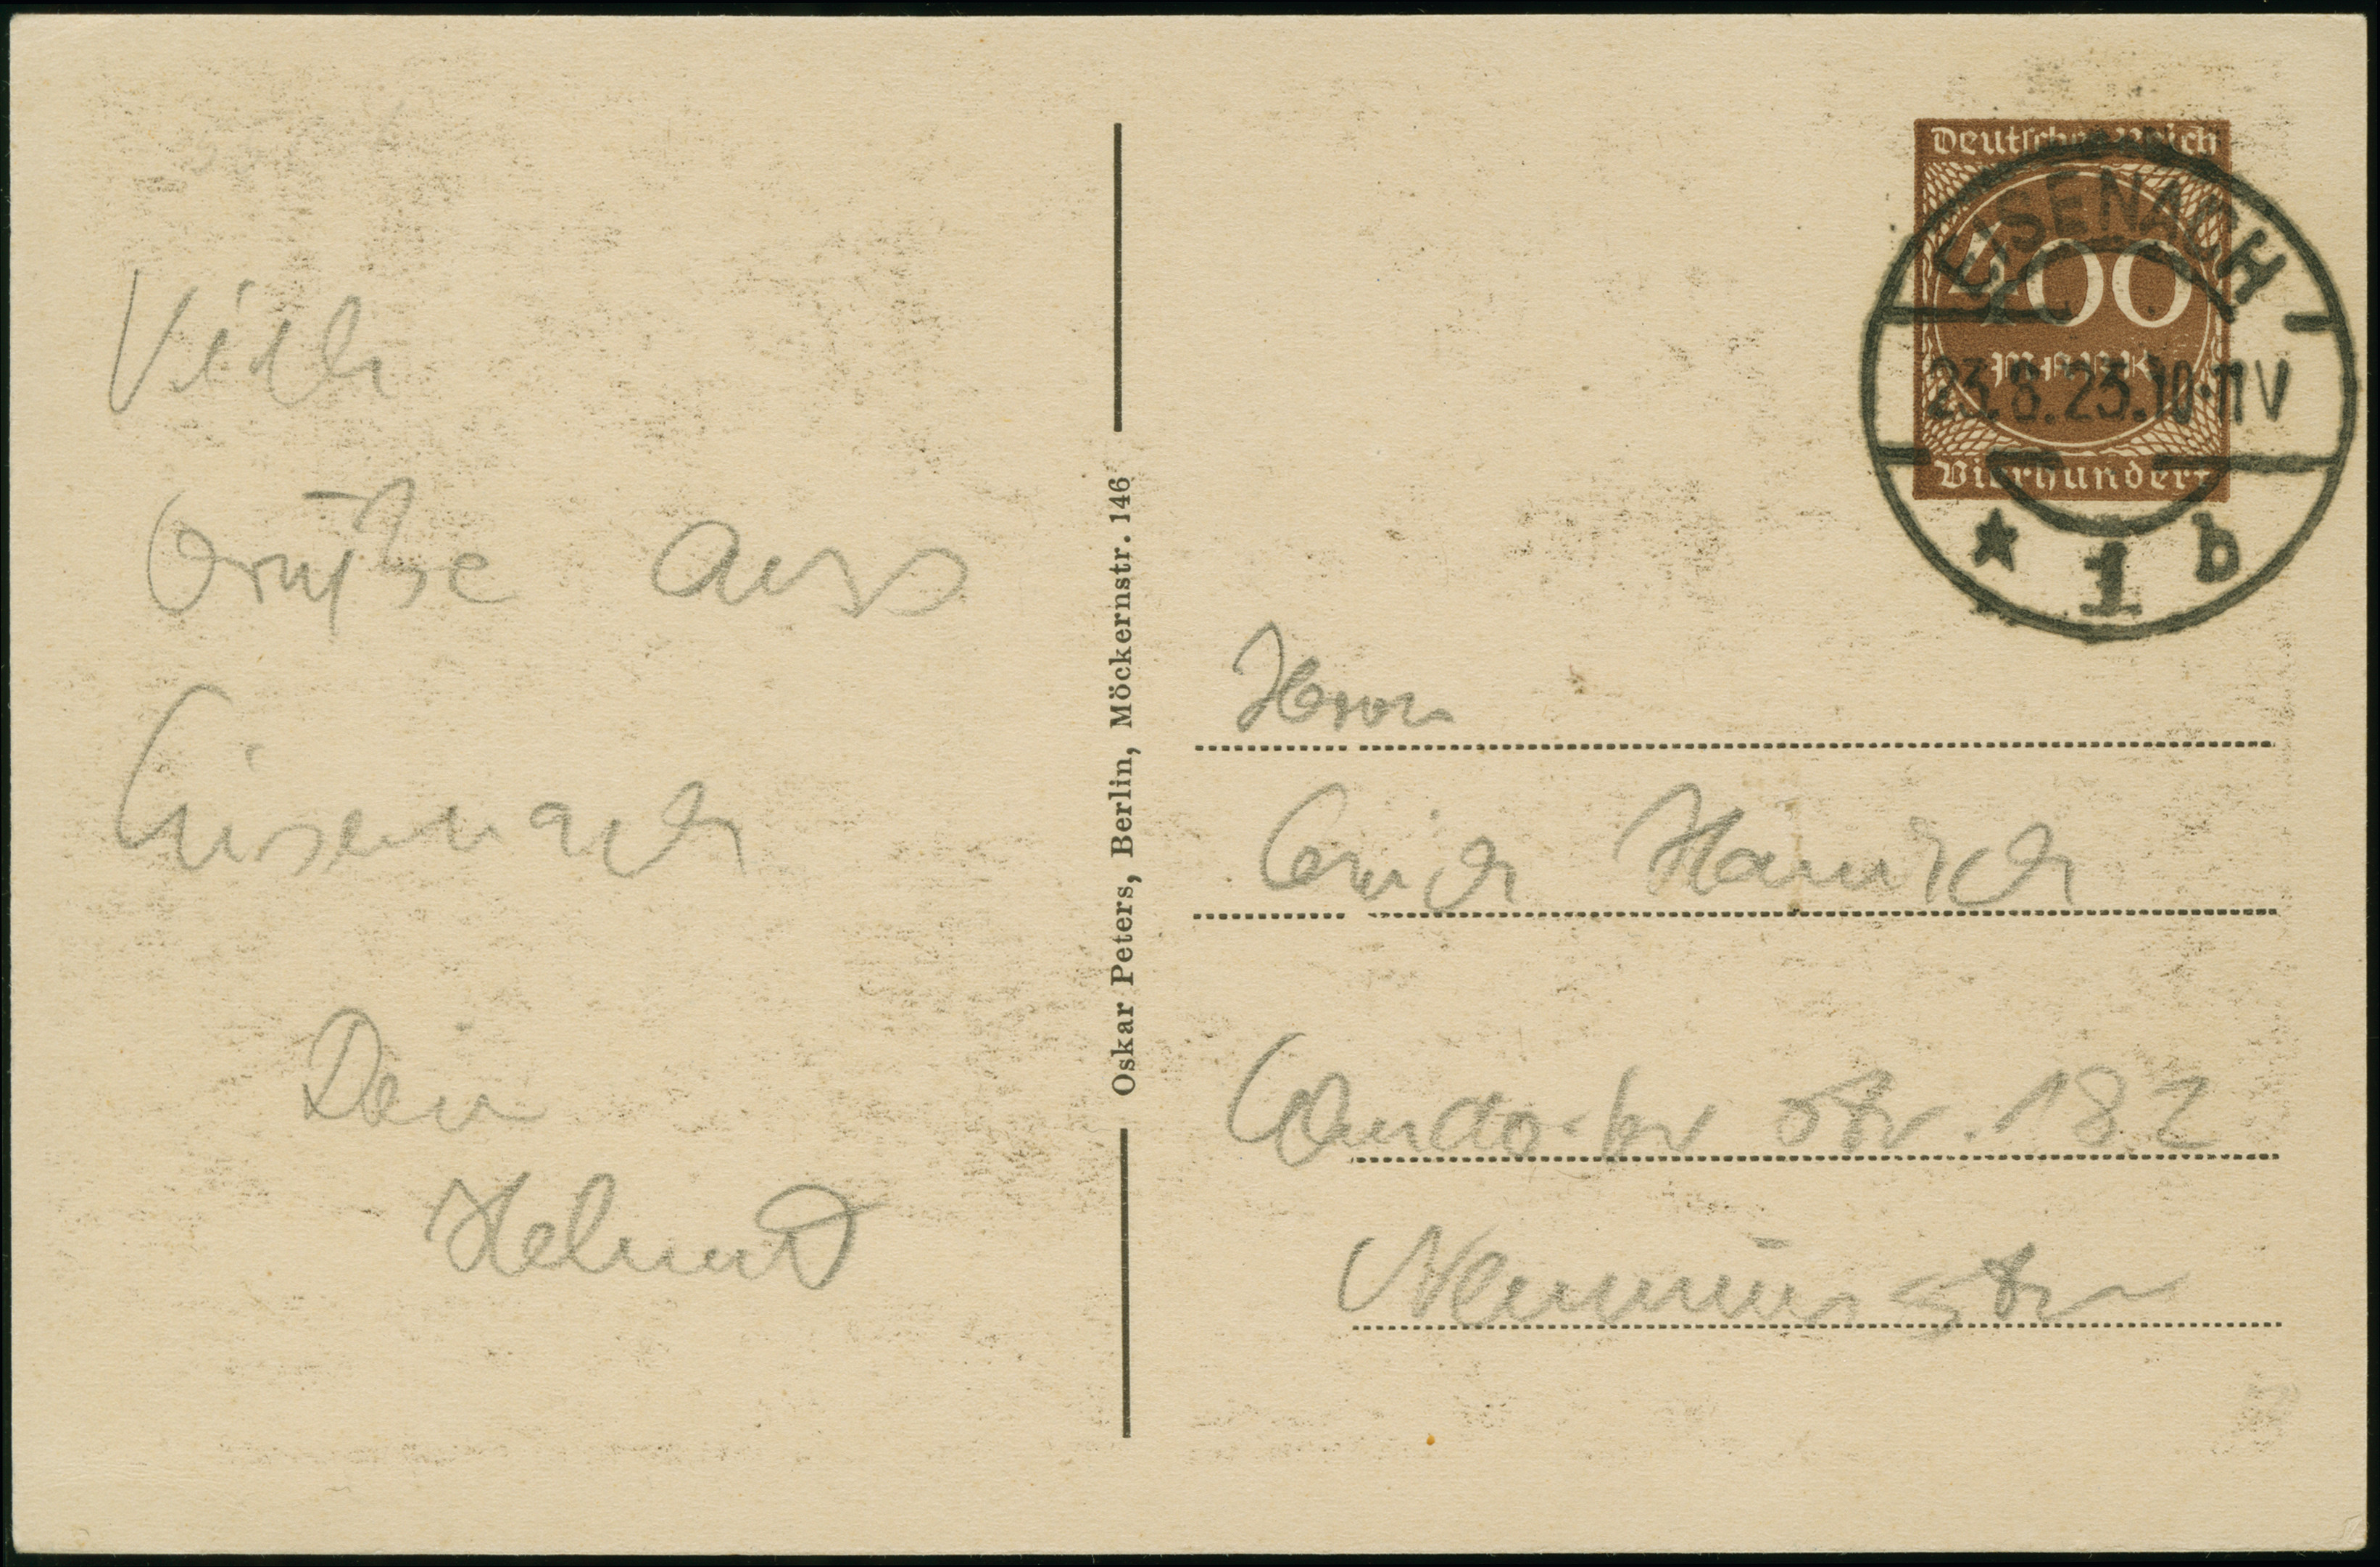 Viele
Grüße aus
Eisenach
Dein
Helmut
Oskar Peters, Berlin, Möckernstr. 146
Deutsches Reich
400
MARK
Vierhundert
EISENACH
23.8.23.10-11V
* 1 b
Herrn
Erich
Str. 182
Neumünster